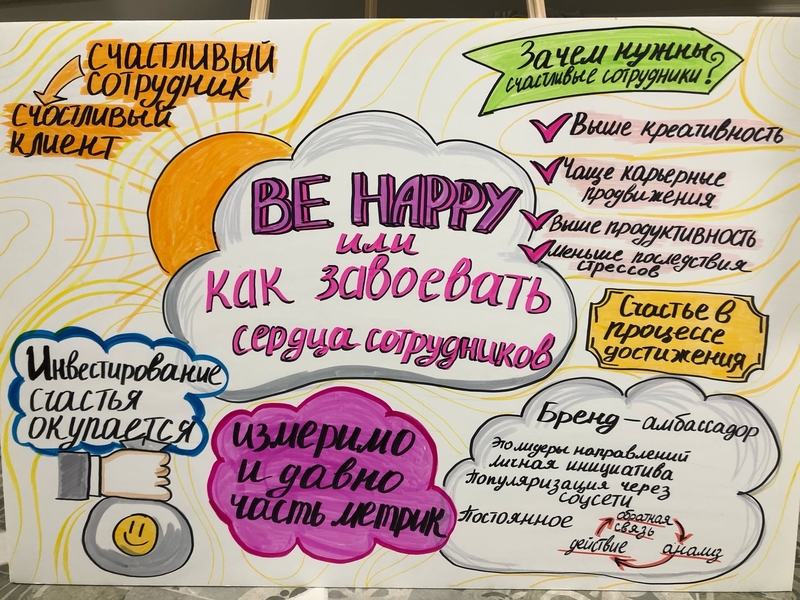 Счастливый
сотрудник
счастливый
клиент
Зачем нужны
счастливые сотрудники?
Выше креативность
Чаще карьерные
продвижения
Выше продуктивность
меньше последствия
стрессов
BE HAPPY
или
как завоевать
сердца сотрудников
Счастье в
процессе
достижения
Инвестирование
счастья
окупается
измеримо
и давно
часть метрик
Бренд-амбассадор
Это лидеры направлений
личная инициатива
Популяризация через
соцсети
Постоянное
обратная
связь
действие
анализ